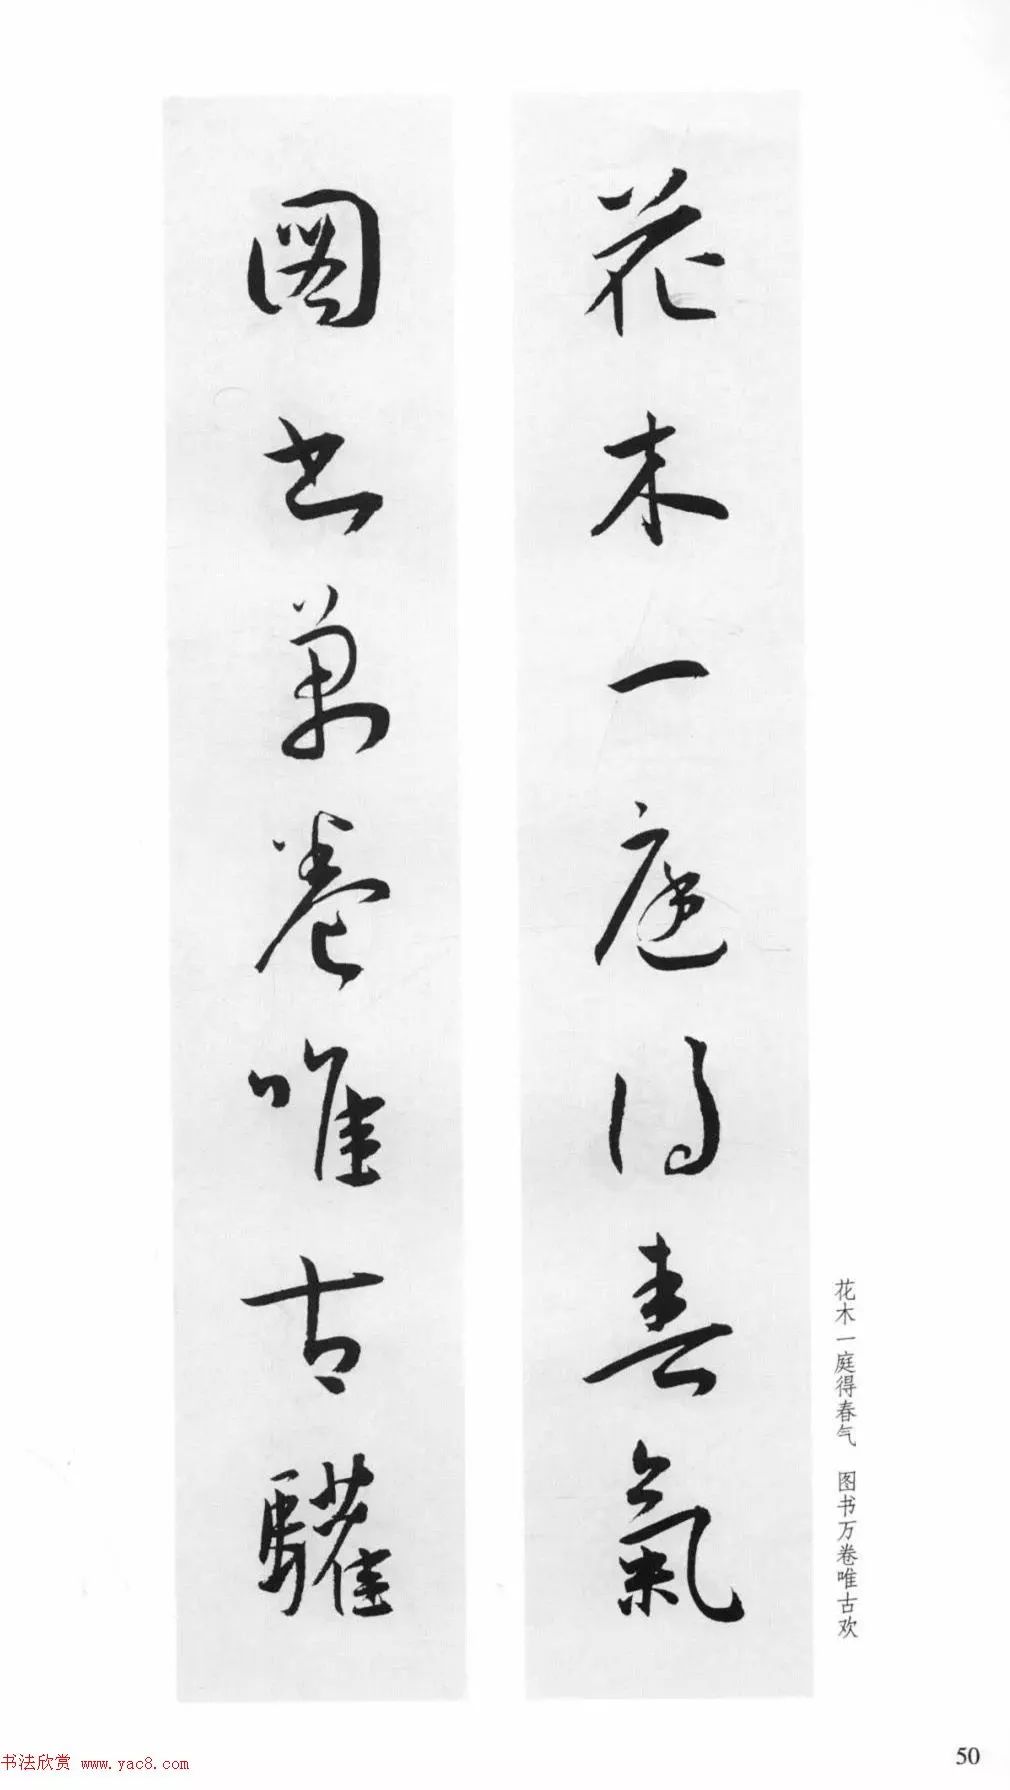 花木一庭得春氣
圖书萬卷唯古驩
花木一庭得春气 图书万卷唯古欢
50
书法欣赏 www.yac8.com